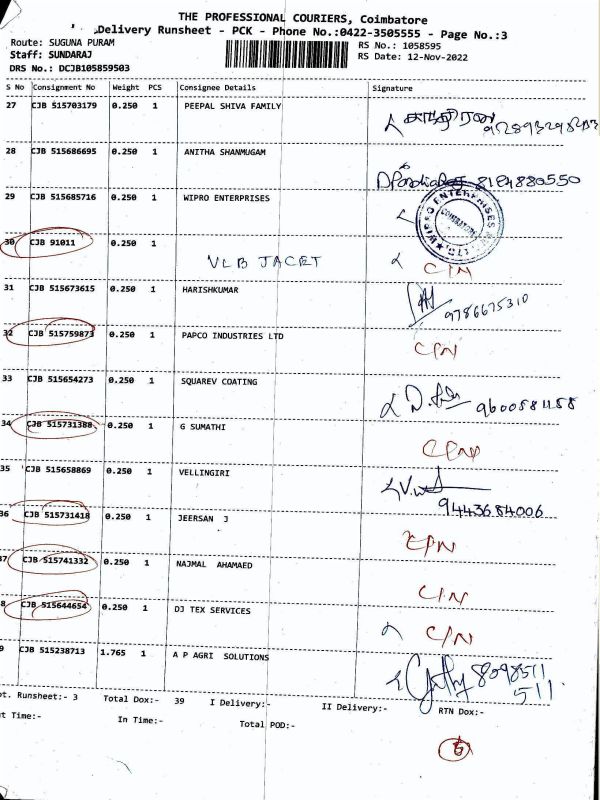 THE PROFESSIONAL COURIERS, Coimbatore
Delivery Runsheet - PCK - Phone No.:0422-3505555 - Page No.:3
Route: SUGUNA PURAM
RS No.: 1058595
Staff: SUNDARAJ
RS Date: 12-Nov-2022
DRS No.: DCJB105859503
S No Consignment No Weight PCS Consignee Details Signature
27 CJB 515703179 0.250 1 PEEPAL SHIVA FAMILY
28 CJB 515686695 0.250 1 ANITHA SHANMUGAM 8124880550
29 CJB 515685716 0.250 1 WIPRO ENTERPRISES
WIPRO ENTERPRISES
30 CJB 91011 0.250 1 VLB JACET C/N
31 CJB 515673615 0.250 1 HARISHKUMAR 9786675310
32 CJB 515759873 0.250 1 PAPCO INDUSTRIES LTD CPN
33 CJB 515654273 0.250 1 SQUAREV COATING 9600581158
34 CJB 515731388 0.250 1 G SUMATHI CPN
35 CJB 515658869 0.250 1 VELLINGIRI 9443684006
36 CJB 515731418 0.250 1 JEERSAN J CPN
37 CJB 515741332 0.250 1 NAJMAL AHAMAED C/N
8 CJB 515644654 0.250 1 DJ TEX SERVICES C/N
9 CJB 515238713 1.765 1 A P AGRI SOLUTIONS 8098511
511
ot. Runsheet:- 3 Total Dox:- 39 I Delivery:- II Delivery:- RTN Dox:-
t Time:- In Time:- Total POD:-
6